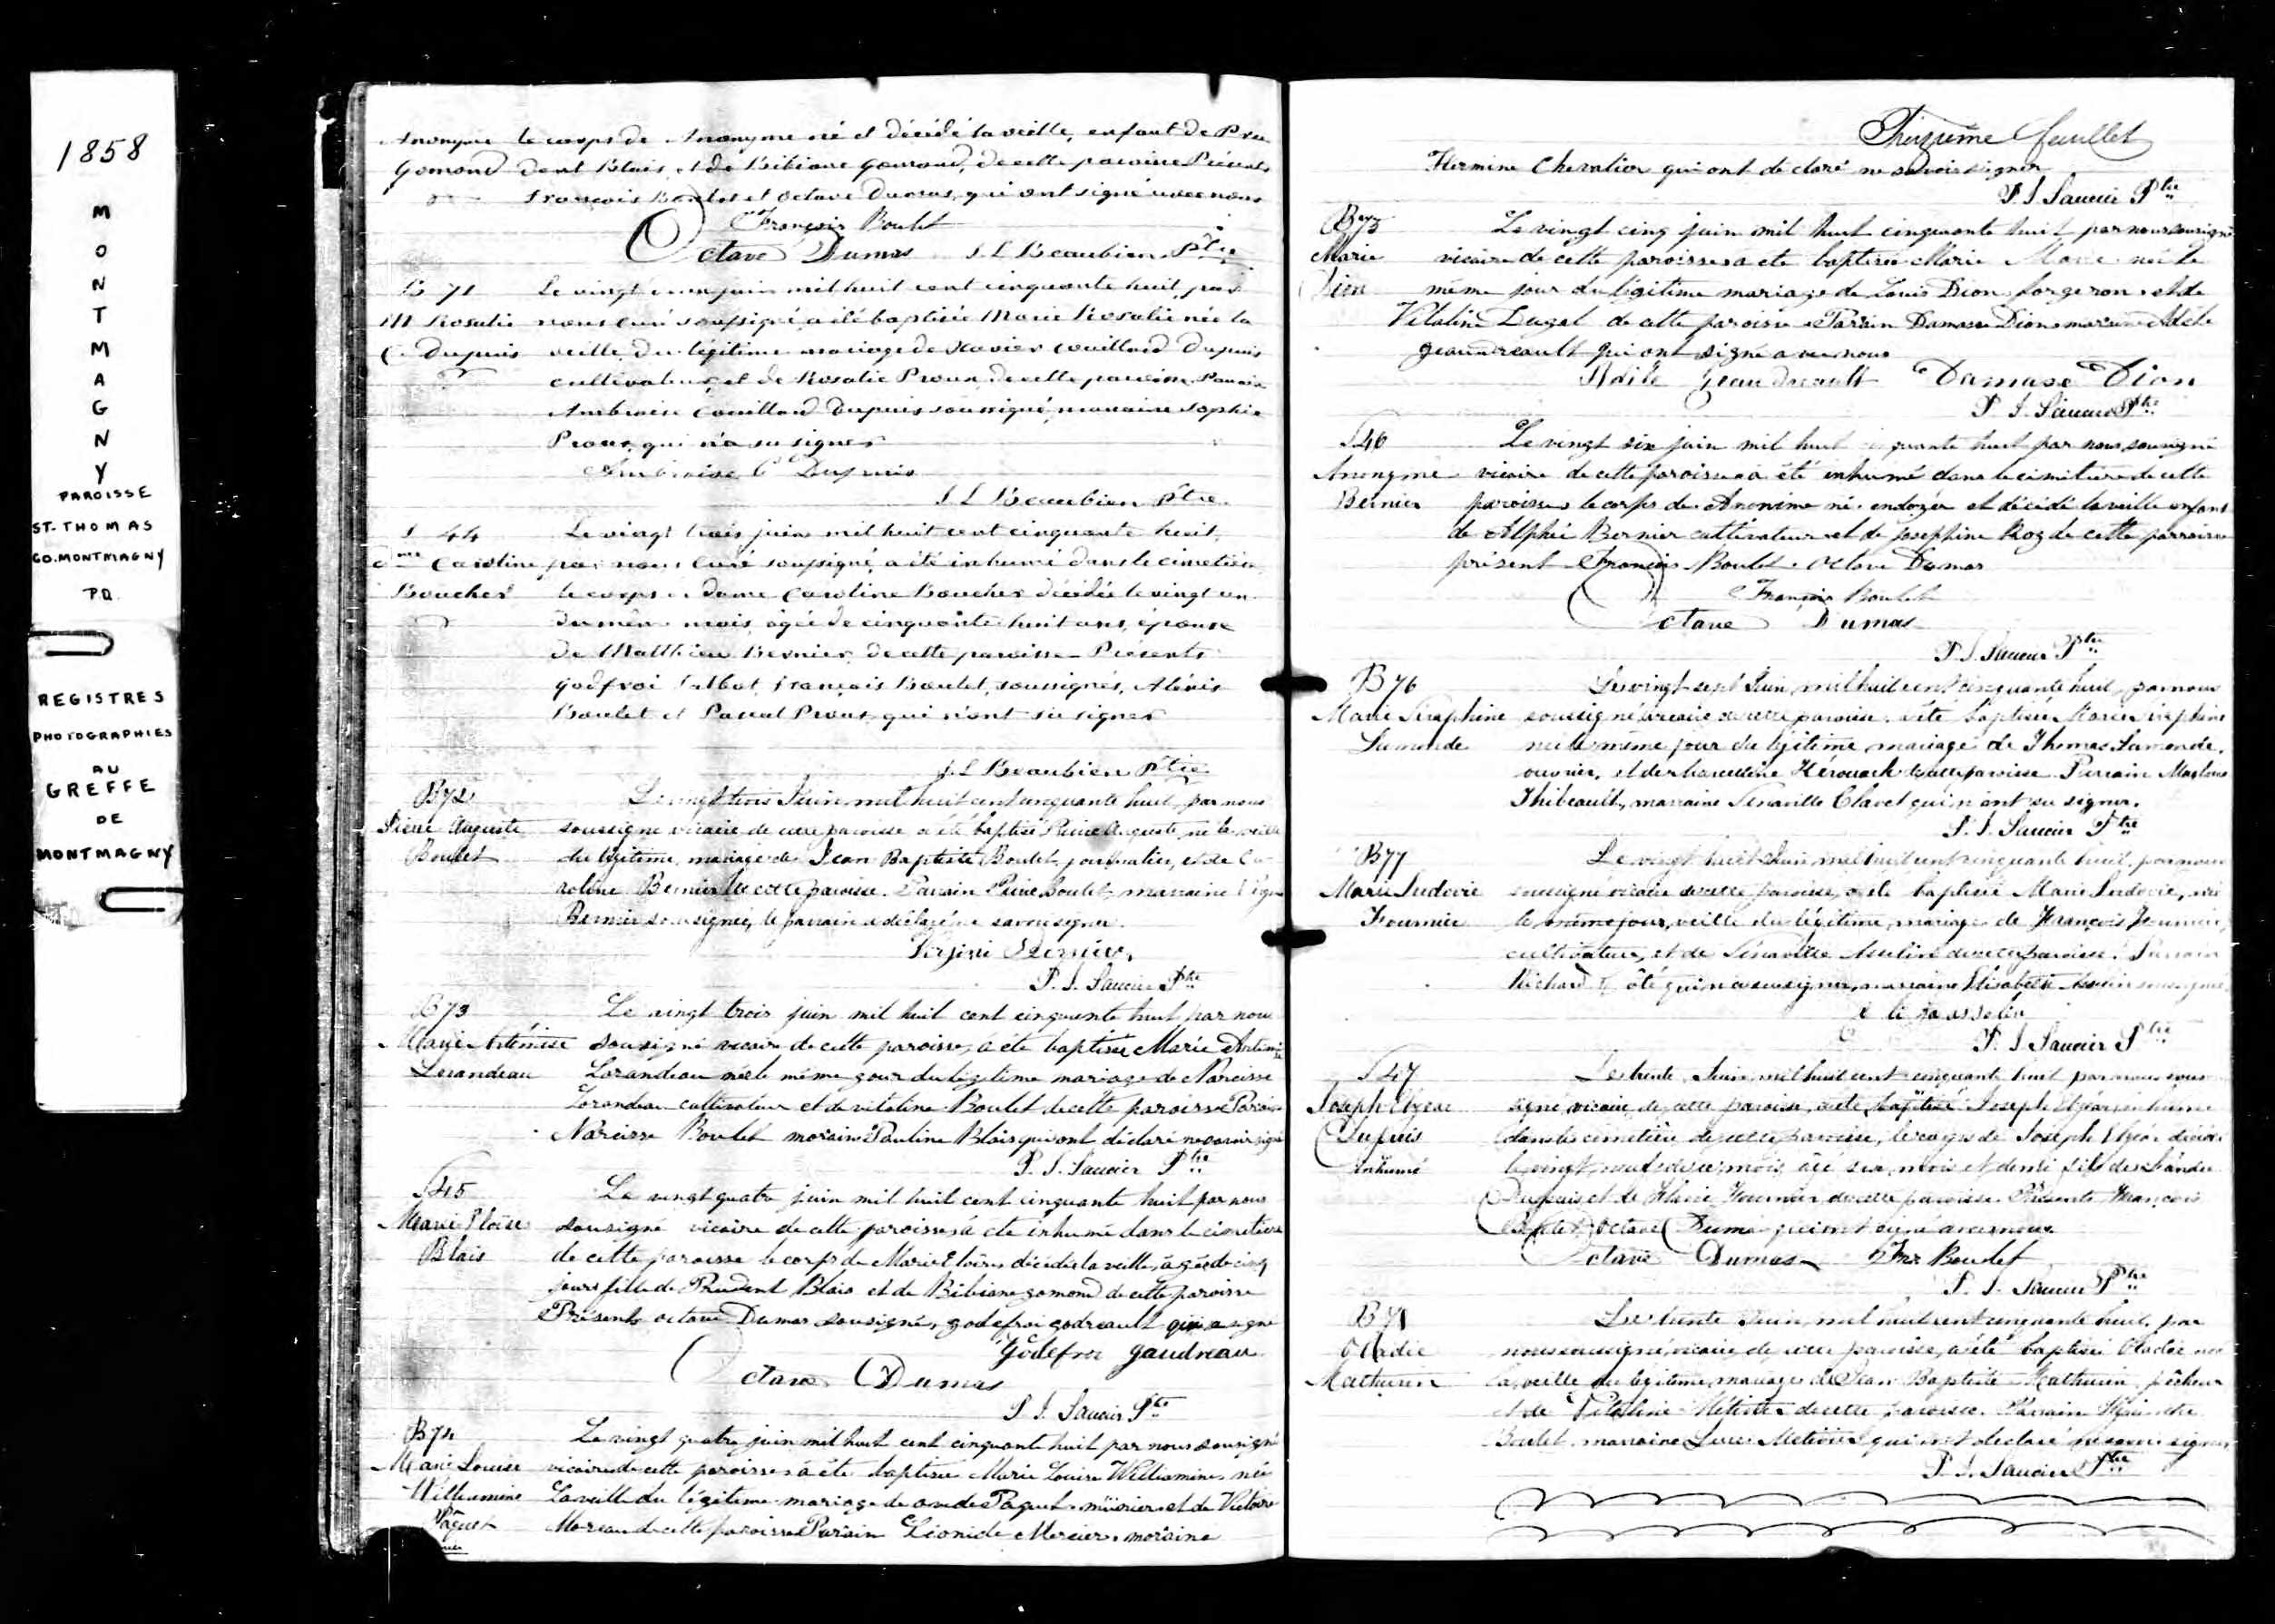 1858
MONTMAGNY
PAROISSE
ST. THOMAS
CO. MONTMAGNY
PQ
REGISTRES
PHOTOGRAPHIES
AU
GREFFE
DE
MONTMAGNY
Anonyme le corps de Anonyme né et décédé la veille, enfant de Pru
Gomond dent Blais et de Bibiane Gomond, de cette paroisse Présents
François Boulet et Octave Dumas, qui ont signé avec nous
François Boulet
Octave Dumas J L Beaubien Ptre
B 71 Le vingt juin mil huit cent cinquante huit, par
M Rosalie nous curé soussigné a été baptisée Marie Rosalie née la
C. Dupuis veille, du légitime mariage de Xavier Couillard Dupuis
cultivateur, et de Rosalie Proux, de cette paroisse. Parrain
Ambroise Couillard Dupuis soussigné, marraine Sophie
Proux, qui n'a su signer
Ambroise C Dupuis
J L Beaubien Ptre
S 44 Le vingt trois juin mil huit cent cinquante huit,
dme Caroline par nous, Curé soussigné, a été inhumé dans le cimetière
Boucher le corps de dame Caroline Boucher décédée le vingt un
du même mois, agée de cinquante huit ans, épouse
de Matthieu Bernier, de cette paroisse - Présents
Godfroi Talbot, François Boulet, soussignés, Alexis
Boulet et Pascal Proux, qui n'ont su signer
J. L Beaubien Ptre
B72 Le vingt trois Juin mil huit cent cinquante huit, par nous
Pierre Auguste soussigné vicaire de cette paroisse a été baptisé Pierre Auguste, né la veille
Boulet du légitime mariage de Jean Baptiste Boulet, journalier, et de Ca
roline Bernier de cette paroisse. Parrain Pierre Boulet, marraine Virginie
Bernier soussignée, le parrain a déclaré ne savoir signer.
Virjini Bernier.
P. J. Saucier Ptre
B73 Le vingt trois juin mil huit cent cinquante huit par nous
Marie Artémise sousigné vicaire de cette paroisse, a été baptisée Marie Artémise
Lorandeau Lorandeau née le même jour du légitime mariage de Narcisse
Lorandeau cultivateur et de vitaline Boulet de cette paroisse Parain
Narcisse Boulet moraine Pauline Blais qui ont déclaré ne savoir signé
P. J. Saucier Ptre
S45 Le vingt quatre juin mil huit cent cinquante huit par nous
Marie Eloïse sousigné vicaire de cette paroisse a été inhumé dans le cimetière
Blais de cette paroisse le corps de Marie Eloïse, décédé la veille, agée de cinq
jours fille de Prudent Blais et de Bibiane gomond de cette paroisse
Présents octave Dumas sousigné, godefroi godreault qui a signé
Godefroi gaudreau
Octave Dumas
P J. Saucier Ptre
B74 Le vingt quatre juin mil huit cent cinquante huit par nous sousigné
Marie Louise vicaire de cette paroisse a été baptisée Marie Louise Willeamine née
Willeamine La veille du légitime mariage de Paquet et de Victoire
Pâquet Moreau de cette paroisse Parain Léonide Mercier. moraine
Treizième feuillet
Hermine Chevalier qui ont déclaré ne savoir signer
P. J. Saucier Ptre
B75 Le vingt cinq juin mil huit cinquante huit par nous sousigné
Marie vicaire de cette paroisse a été baptisée Marie Marie née le
Dion même jour du légitime mariage de Louis Dion forgeron et de
Vitaline de cette paroisse Parrain Damase Dion maraine Adèle
geaudreault qui ont signé avec nous
Adèle geaudreault Damase Dion
P J. Saucier Ptre
S46 Le vingt six juin mil huit cinquante huit par nous sousigné
Anonyme vicaire de cette paroisse a été inhumé dans le cimetière de cette
Bernier paroisse le corps de Anonime né endoyer et décédé la veille enfant
de Alphé Bernier cultivateur et de Josephine Roy de cette parroisse
présent François Boulet. Octave Dumas
François Boulet
Octave Dumas
P. J. Saucier Ptre
B76 Le vingt sept Juin, mil huit cent cinquante huit, par nous
Marie Séraphine soussigné vicaire de cette paroisse, a été baptisée Marie Séraphine
Lamonde née le même jour du légitime mariage de Thomas Lamonde,
ouvrier, et de Hérouack de cette paroisse. Parrain
Thibeault, marraine Clavet qui n'ont su signer.
P. J. Saucier Ptre
B77 Le vingt huit Juin mil huit cent cinquante huit, par nous
Marie Ludovie soussigné vicaire de cette paroisse, a été baptisée Marie Ludovie, née
Fournier le même jour, veille du légitime mariage de François Fournier,
cultivateur, et de de cette paroisse. Parrain
Richard Côté qui n'a su signer, marraine Elisabeth soussignée
P. J Saucier Ptre
S47 Le trente Juin mil huit cent cinquante huit par nous sous
Joseph Elzéar signé vicaire de cette paroisse, a été baptisé Joseph Elzéar inhumé
Dupuis dans le cimetière de cette paroisse, le corps de Joseph Elzéar décédé
inhumé le vingt neuf de ce mois, âgé six mois et demi fils de
Dupuis et de Fournier de cette paroisse. Présents François
Boulet, Octave Dumas qui ont signé avec nous
Octave Dumas Frs Boulet
P. J. Saucier Ptre
B78 Le trente Juin, mil huit cent cinquante huit, par
Oladie nous soussigné vicaire de cette paroisse, a été baptisée Oladie née
Mathurin la veille du légitime mariage de Jean Baptiste Mathurin pêcheur
et de Vitaline de cette paroisse. Parrain
Boulet, marraine qui ont déclaré ne savoir signer
P. J. Saucier Ptre